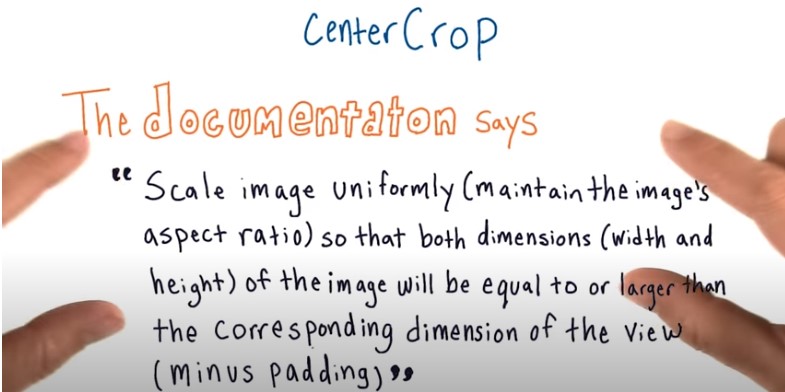 CenterCrop
The documentaton says
"Scale image uniformly (maintain the image's
aspect ratio) so that both dimensions (width and
height) of the image will be equal to or larger than
the corresponding dimension of the view
(minus padding)"